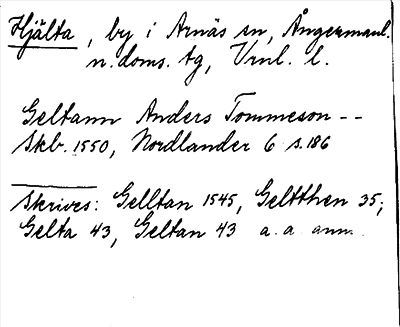 Hjälta, by i Arnäs sn, Ångermanl.
n. doms. tg, Vrnl. l.
Geltann Anders Tommeson --
Skb. 1550, Nordlander 6 s. 186
Skrives: Gelltan 1545, Geltthen 35;
Gelta 43, Geltan 43 a. a. ann.